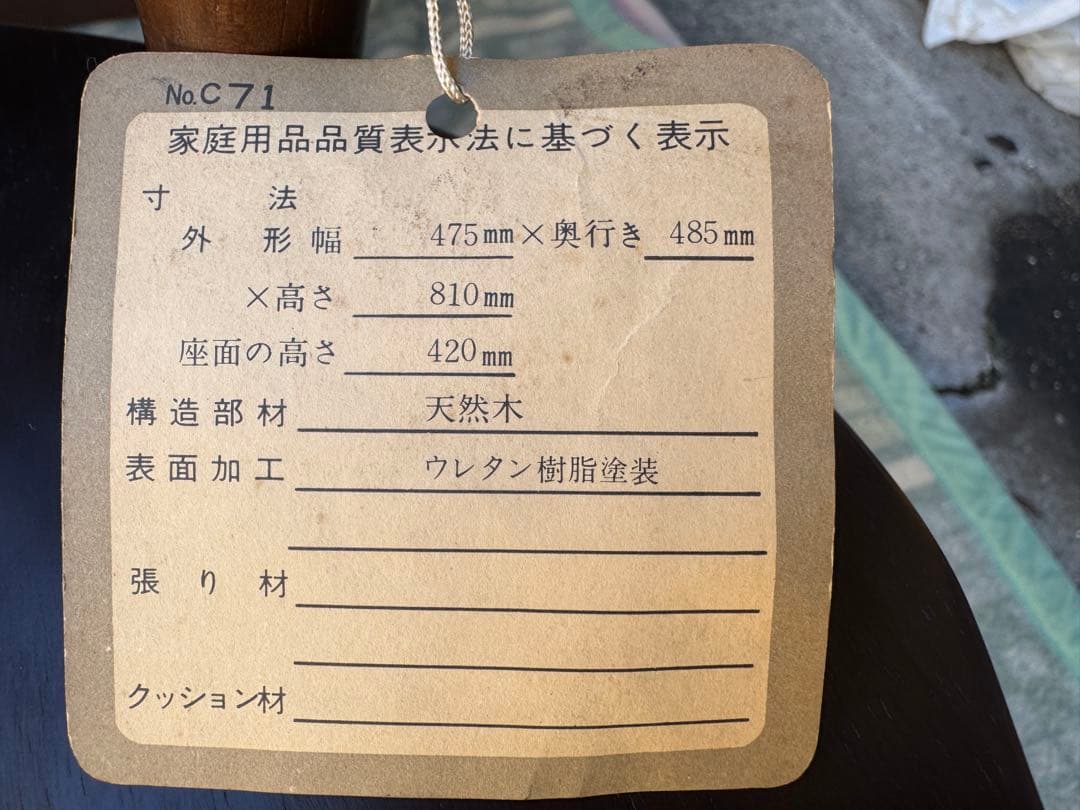 No.C71
家庭用品品質表示法に基づく表示
寸法
外形幅 475mm×奥行き 485mm
×高さ 810mm
座面の高さ 420mm
構造部材 天然木
表面加工 ウレタン樹脂塗装
張り材
クッション材